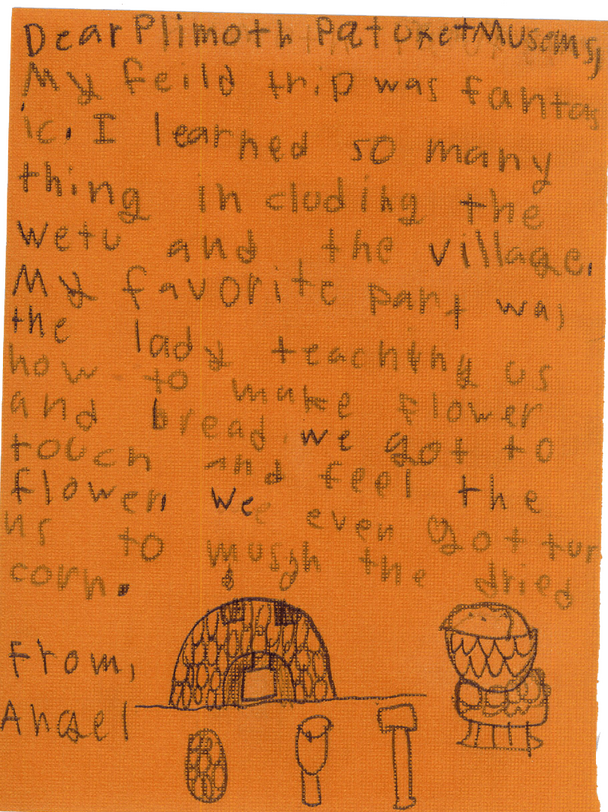 Dear Plimoth Patuxet Musems,
My feild trip was fantas
ic. I learned so many
thing in cluding the
wetu and the village.
My favorite part was
the lady teaching us
how to make flower
and bread. we got to
touch and feel the
flower. We even got tur
ns to mush the dried
corn.
From,
Angel